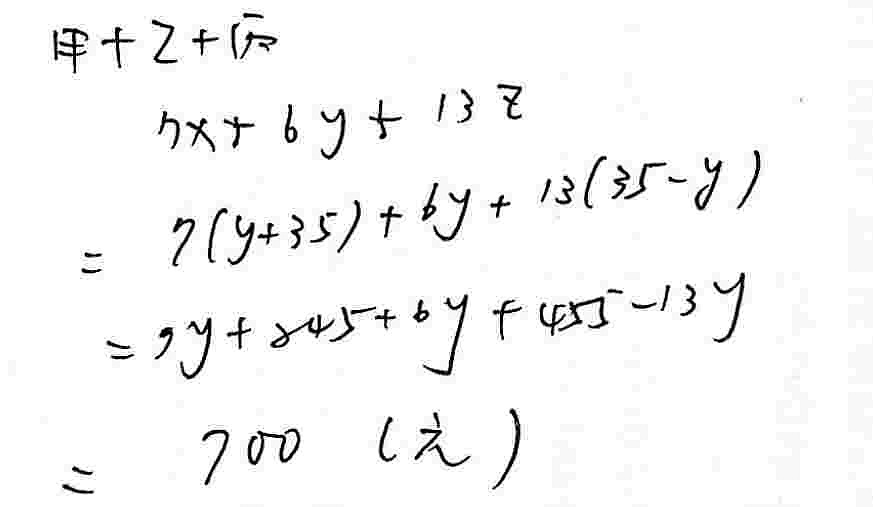 甲+乙+丙
7x+6y+13z
=7(y+35)+6y+13(35-y)
=7y+245+6y+455-13y
=700 (元)